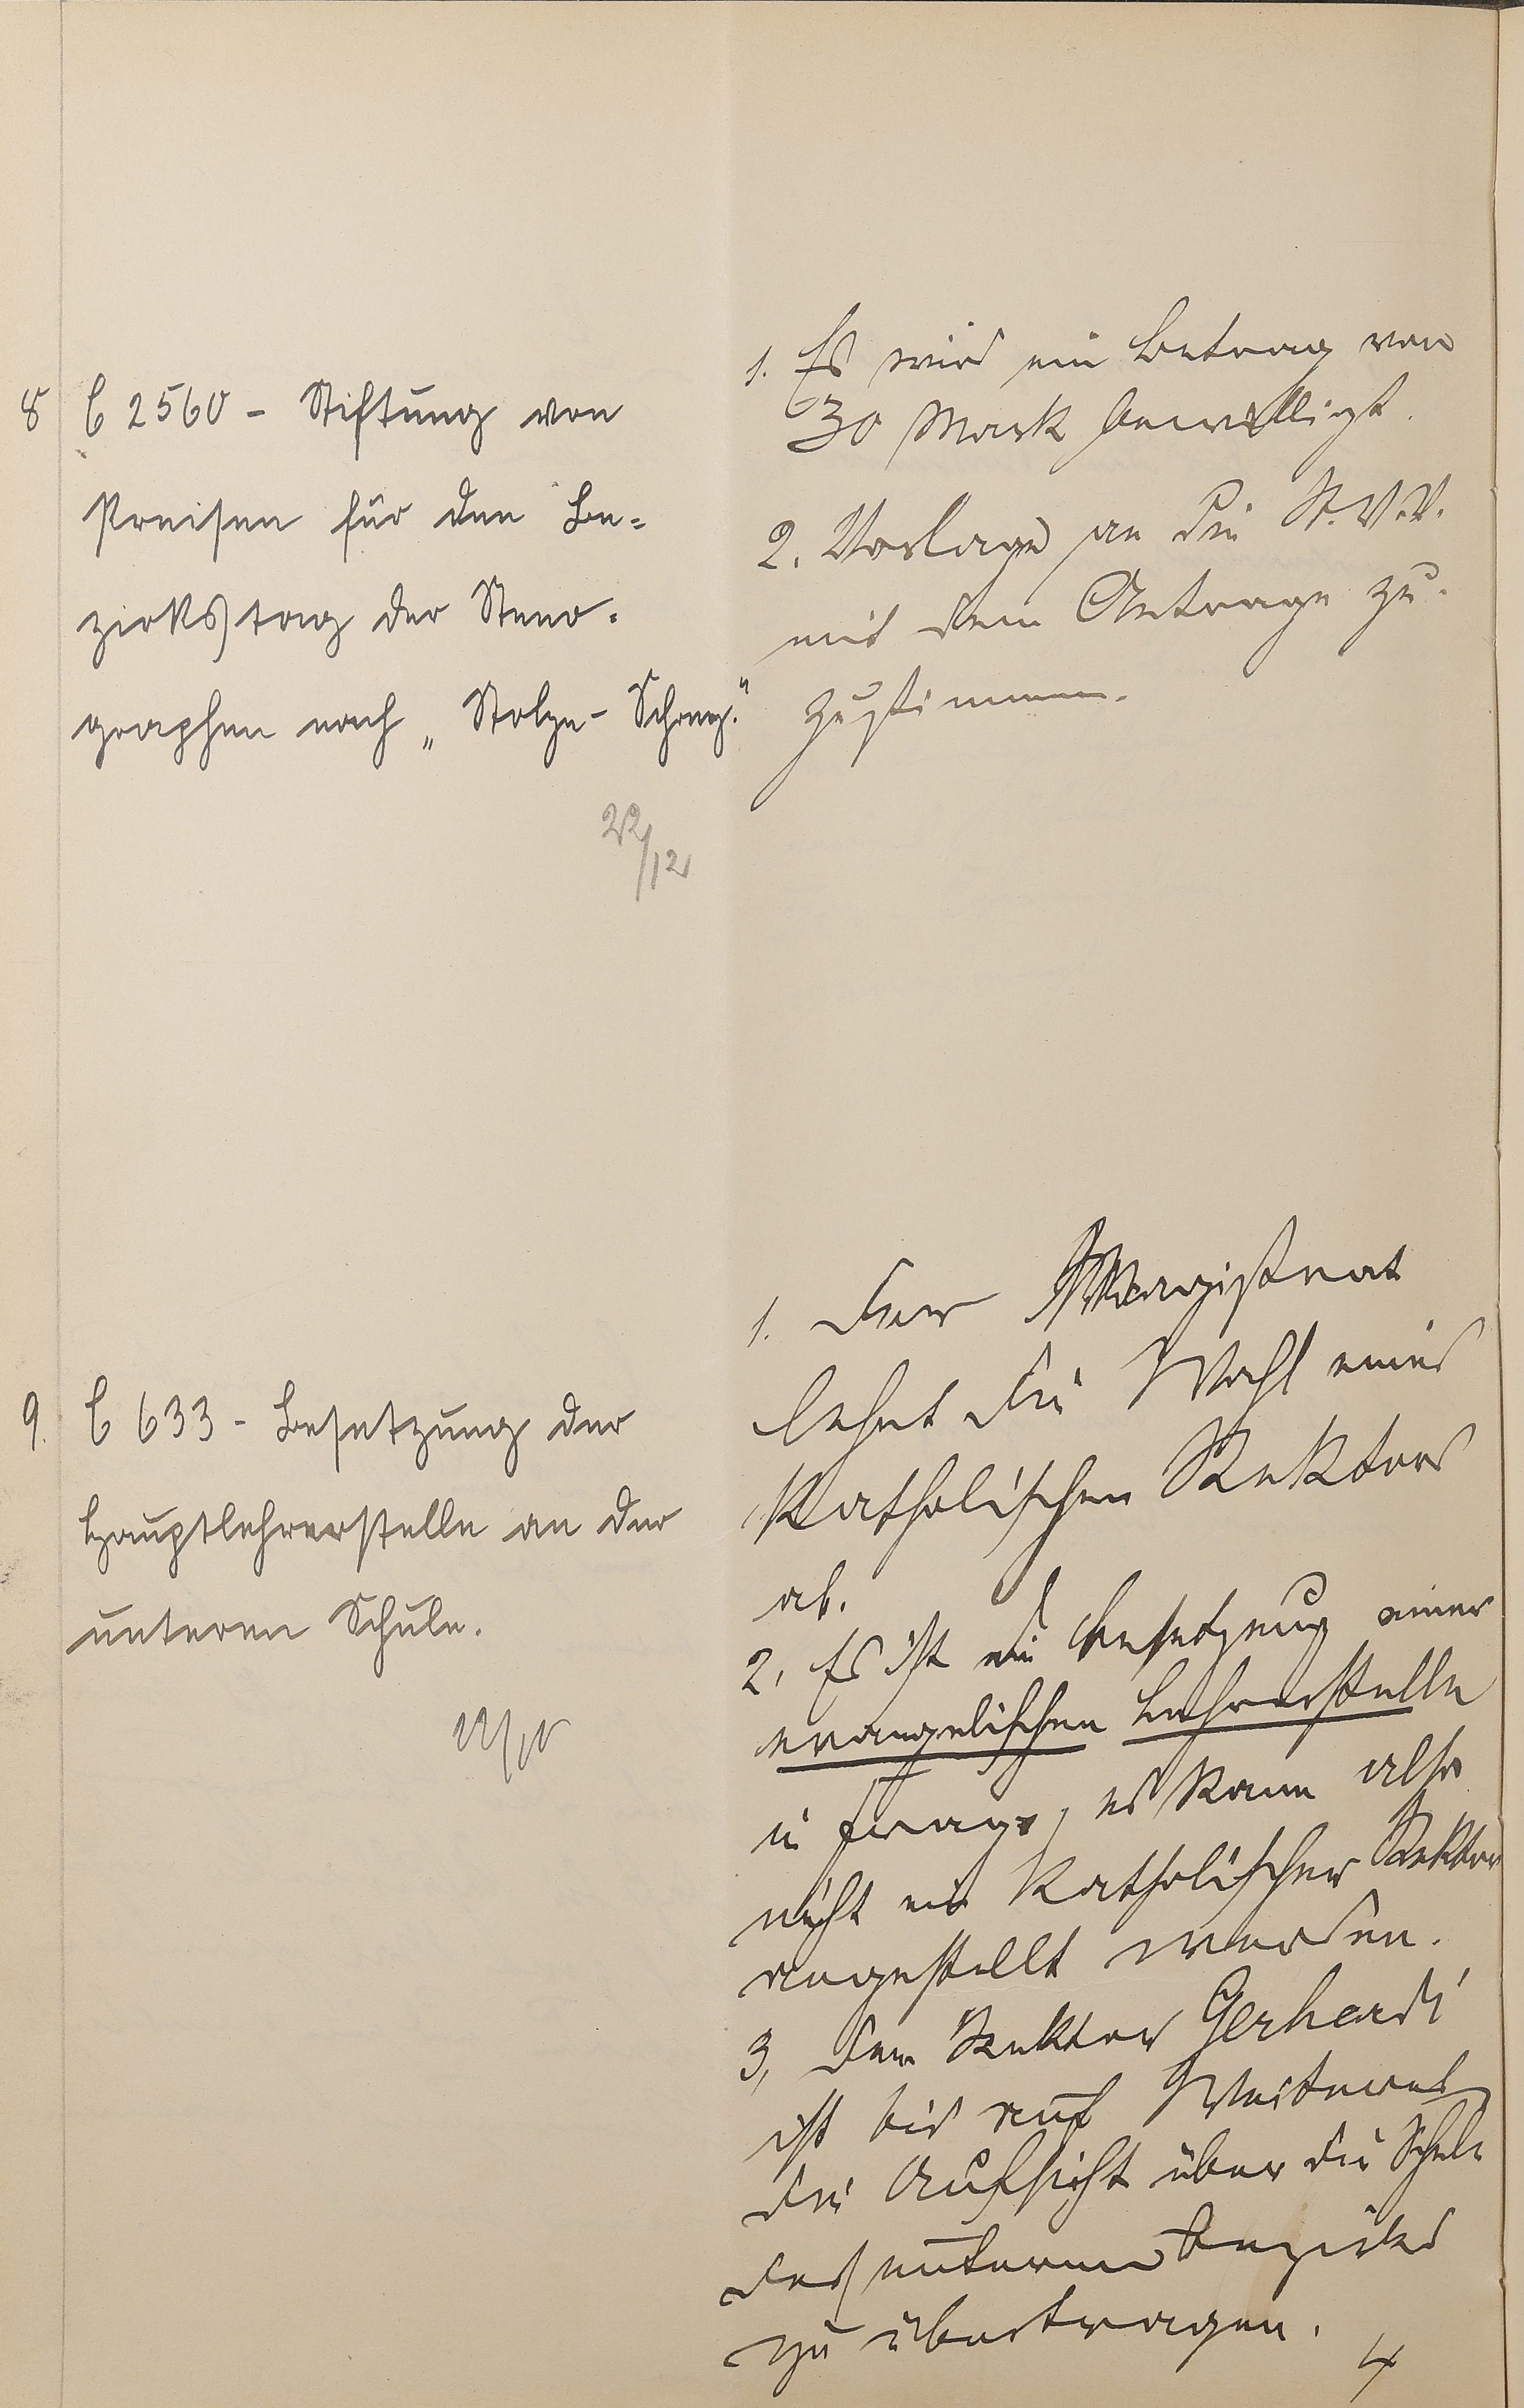 8 C 2560 - Stiftung von
Preisen für den Be-
zirkstag der Steno-
graphen nach „Stolze-Schrey."
22/12
1. Es wird ein Betrag von
30 Mark bewilligt.
2. Vorlage an die St.V.V.
mit dem Antrage zu-
zustimmen.
9. C 633 - Besetzung der
Hauptlehrerstelle an der
unteren Schule.
1. Der Magistrat
lehnt die Wahl eines
katholischen Rektors
ab.
2. Es ist die Besetzung einer
evangelischen Lehrerstelle
in Frage, es kann also
nicht ein katholischer Rektor
angestellt werden.
3, Dem Rektor Gerhardi
ist bis auf Weiteres
die Aufsicht über die Schule
des unteren Bezirks
zu übertragen.